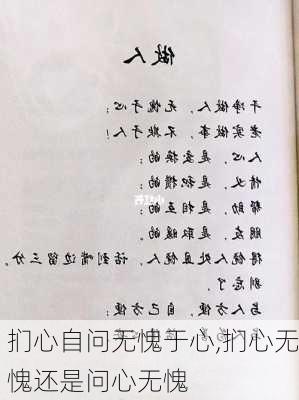 做人
干净做人，无愧于心；
老实做事，不欺于人！
人心，是交换的；
情义，是积攒的；
小红书
帮助，是相互的；
朋友，是取暖的；
得饶人处且饶人，话到嘴边留三分。
别忘了
与人方便，自己方便；
扪心自问无愧于心,扪心无
愧还是问心无愧